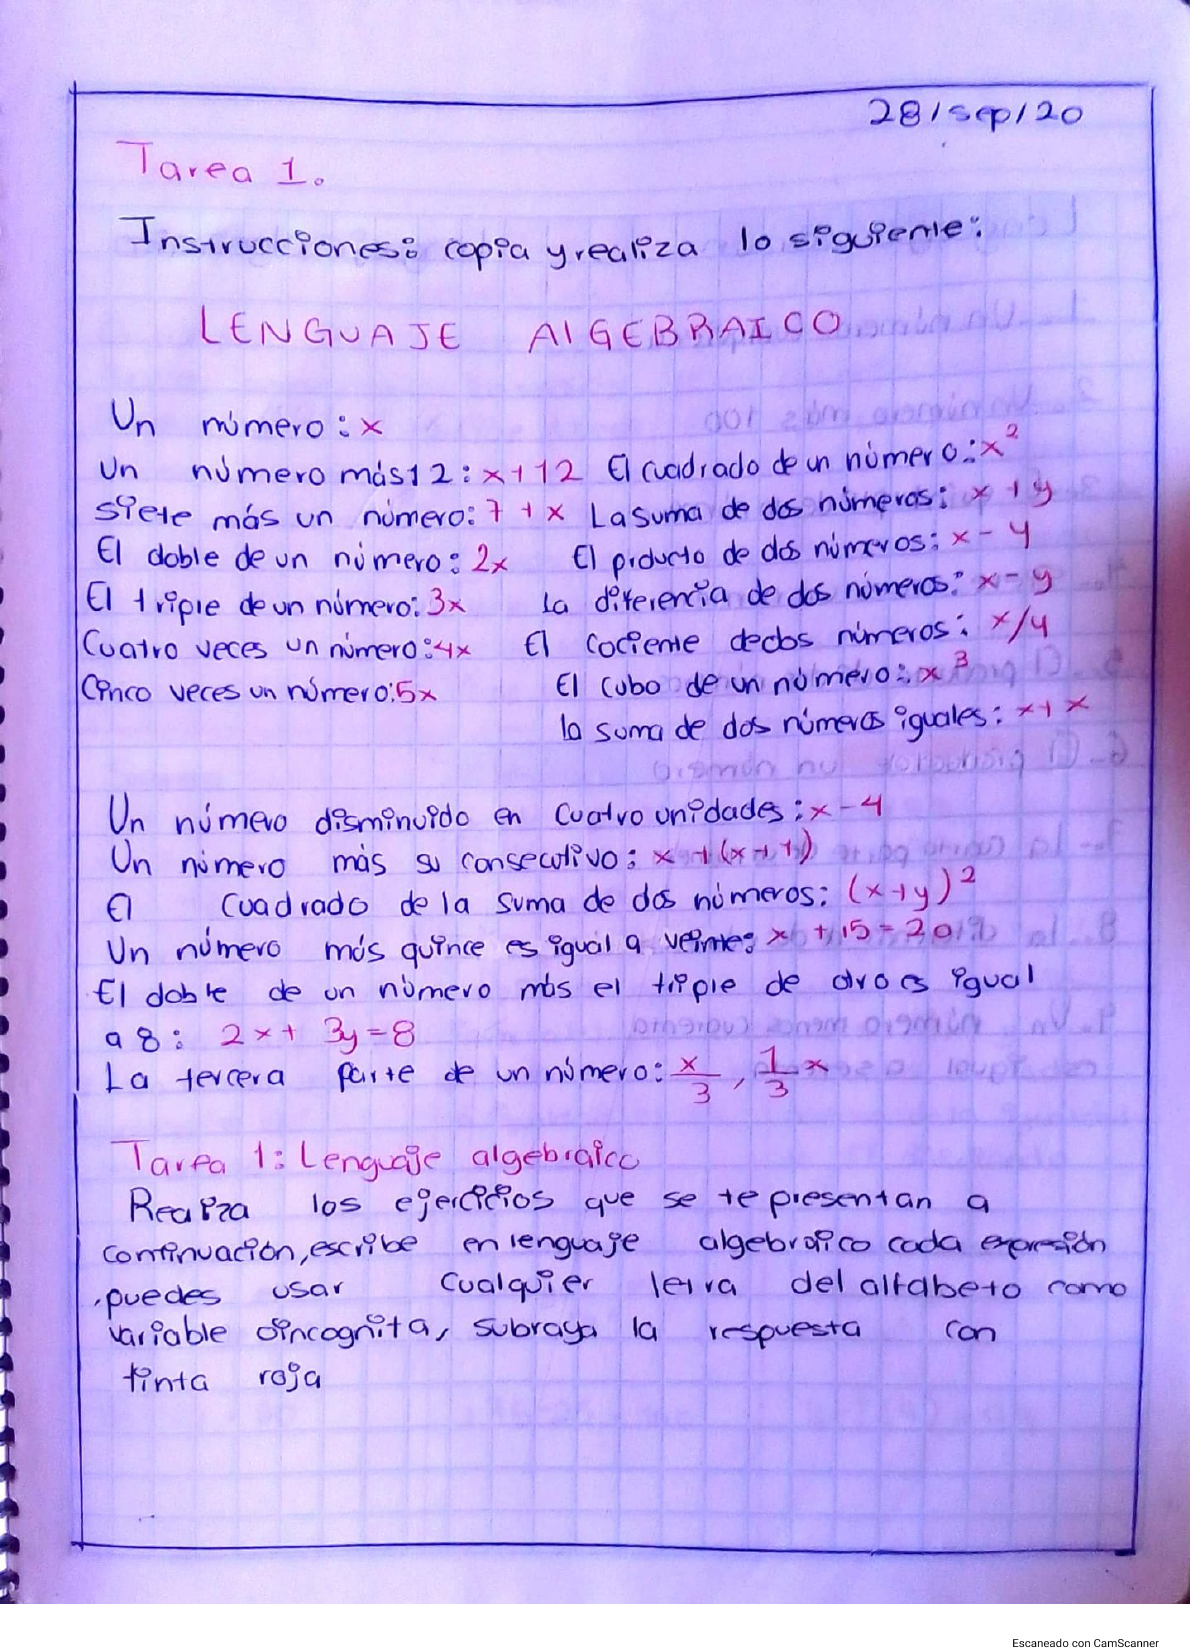 28/sep/20
Tarea 1.
Instrucciones: copia y realiza lo siguiente:
LENGUAJE AlGEBRAICO
Un número: x
Un número más 12: x+12 El cuadrado de un número: x²
siete más un número: 7+x La suma de dos números: x+y
El doble de un número: 2x El producto de dos números: x-y
El triple de un número: 3x la diferencia de dos números: x-y
Cuatro veces un número: 4x El cociente de dos números: x/y
Cinco veces un número: 5x El cubo de un número: x³
la suma de dos números iguales: x+x
Un número disminuido en cuatro unidades: x-4
Un número más su consecutivo: x+(x+1)
El cuadrado de la suma de dos números: (x+y)²
Un número más quince es igual a veinte: x+15=20
El doble de un número más el triple de otro es igual
a 8: 2x+3y=8
La tercera parte de un número: x/3, 1/3 x
Tarea 1: Lenguaje algebraico
Realiza los ejercicios que se te presentan a
continuación, escribe en lenguaje algebraico cada expresión
puedes usar cualquier letra del alfabeto como
variable o incognita, subraya la respuesta con
tinta roja
Escaneado con CamScanner